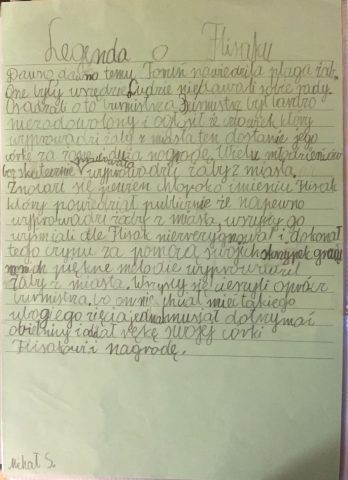 Legenda o Flisaku
Dawno dawno temu Toruń nawiedziła plaga żab.
One były wszędzie Ludzie
o to burmistrza burmistrz był bardzo
niezadowolony i ogłosił że człowiek który
wyprowadzi żaby z miasta ten dostanie jego
córkę za żonę i dużą nagrodę. Wielu młodzieńców
bezskutecznie wyprowadzić żaby z miasta.
Znalazł się pewien chłopak o imieniu Flisak
który powiedział publicznie że na pewno
wyprowadzi żaby z miasta, wszyscy go
wyśmiali ale Flisak nie zrezygnował i dokonał
tego czynu za pomocą swoich skrzypek grając
na nich piękne melodie wyprowadził
żaby z miasta. Wszyscy się cieszyli oprócz
burmistrza bo on nie chciał mieć takiego
ubogiego zięcia jednak musiał dotrzymać
obietnicy i oddał rękę swojej córki
Flisakowi i nagrodę.
Michał S.